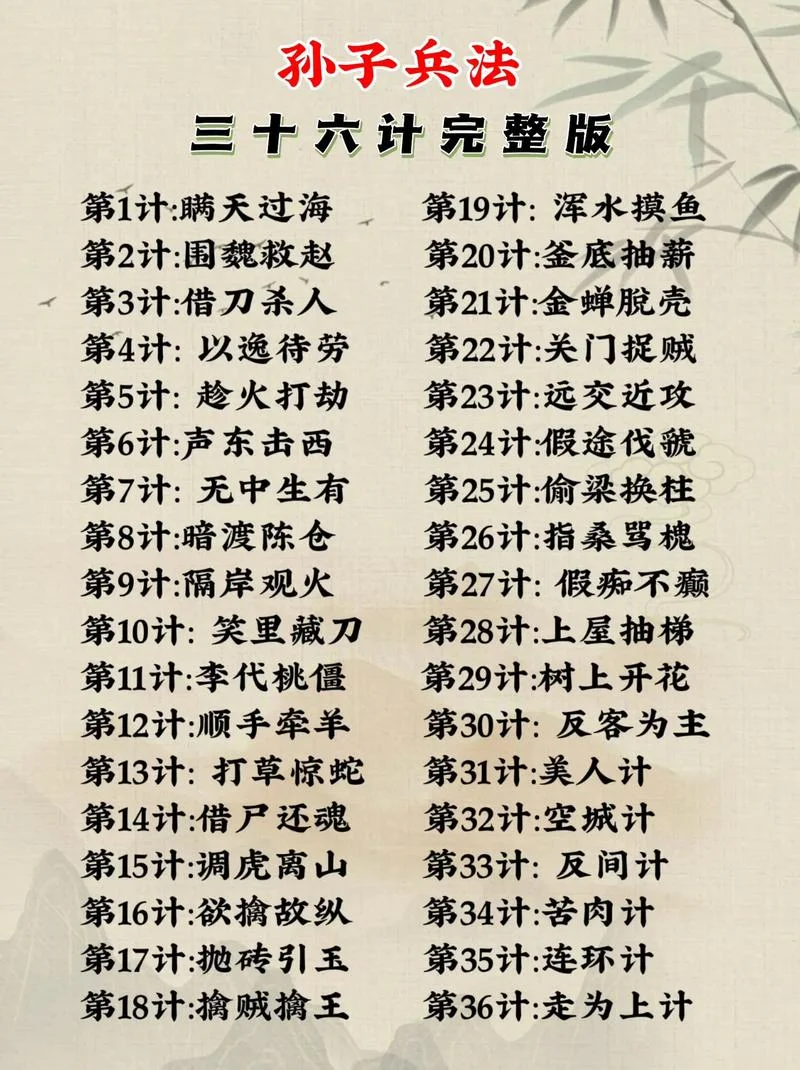 孙子兵法
三十六计完整版
第1计:瞒天过海
第2计:围魏救赵
第3计:借刀杀人
第4计: 以逸待劳
第5计: 趁火打劫
第6计:声东击西
第7计: 无中生有
第8计:暗渡陈仓
第9计:隔岸观火
第10计: 笑里藏刀
第11计:李代桃僵
第12计:顺手牵羊
第13计: 打草惊蛇
第14计:借尸还魂
第15计:调虎离山
第16计:欲擒故纵
第17计:抛砖引玉
第18计:擒贼擒王
第19计: 浑水摸鱼
第20计:釜底抽薪
第21计:金蝉脱壳
第22计:关门捉贼
第23计:远交近攻
第24计:假途伐虢
第25计:偷梁换柱
第26计:指桑骂槐
第27计: 假痴不癫
第28计:上屋抽梯
第29计:树上开花
第30计: 反客为主
第31计:美人计
第32计:空城计
第33计: 反间计
第34计:苦肉计
第35计:连环计
第36计:走为上计